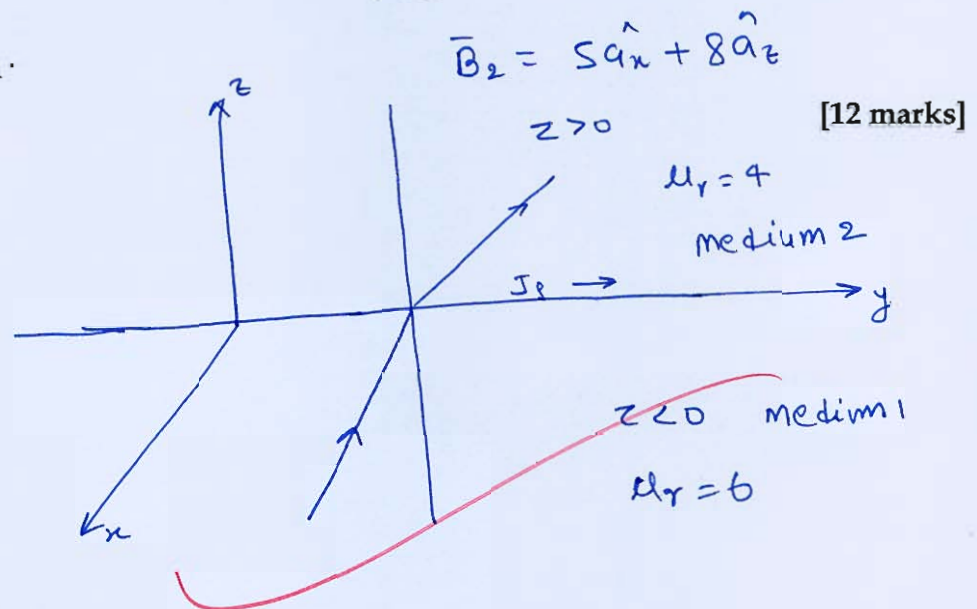 B̄₂ = 5âₓ + 8â_z
z
[12 marks]
z>0
μᵣ = 4
medium 2
Jₛ →
y
z<0 medium 1
μᵣ = 6
x